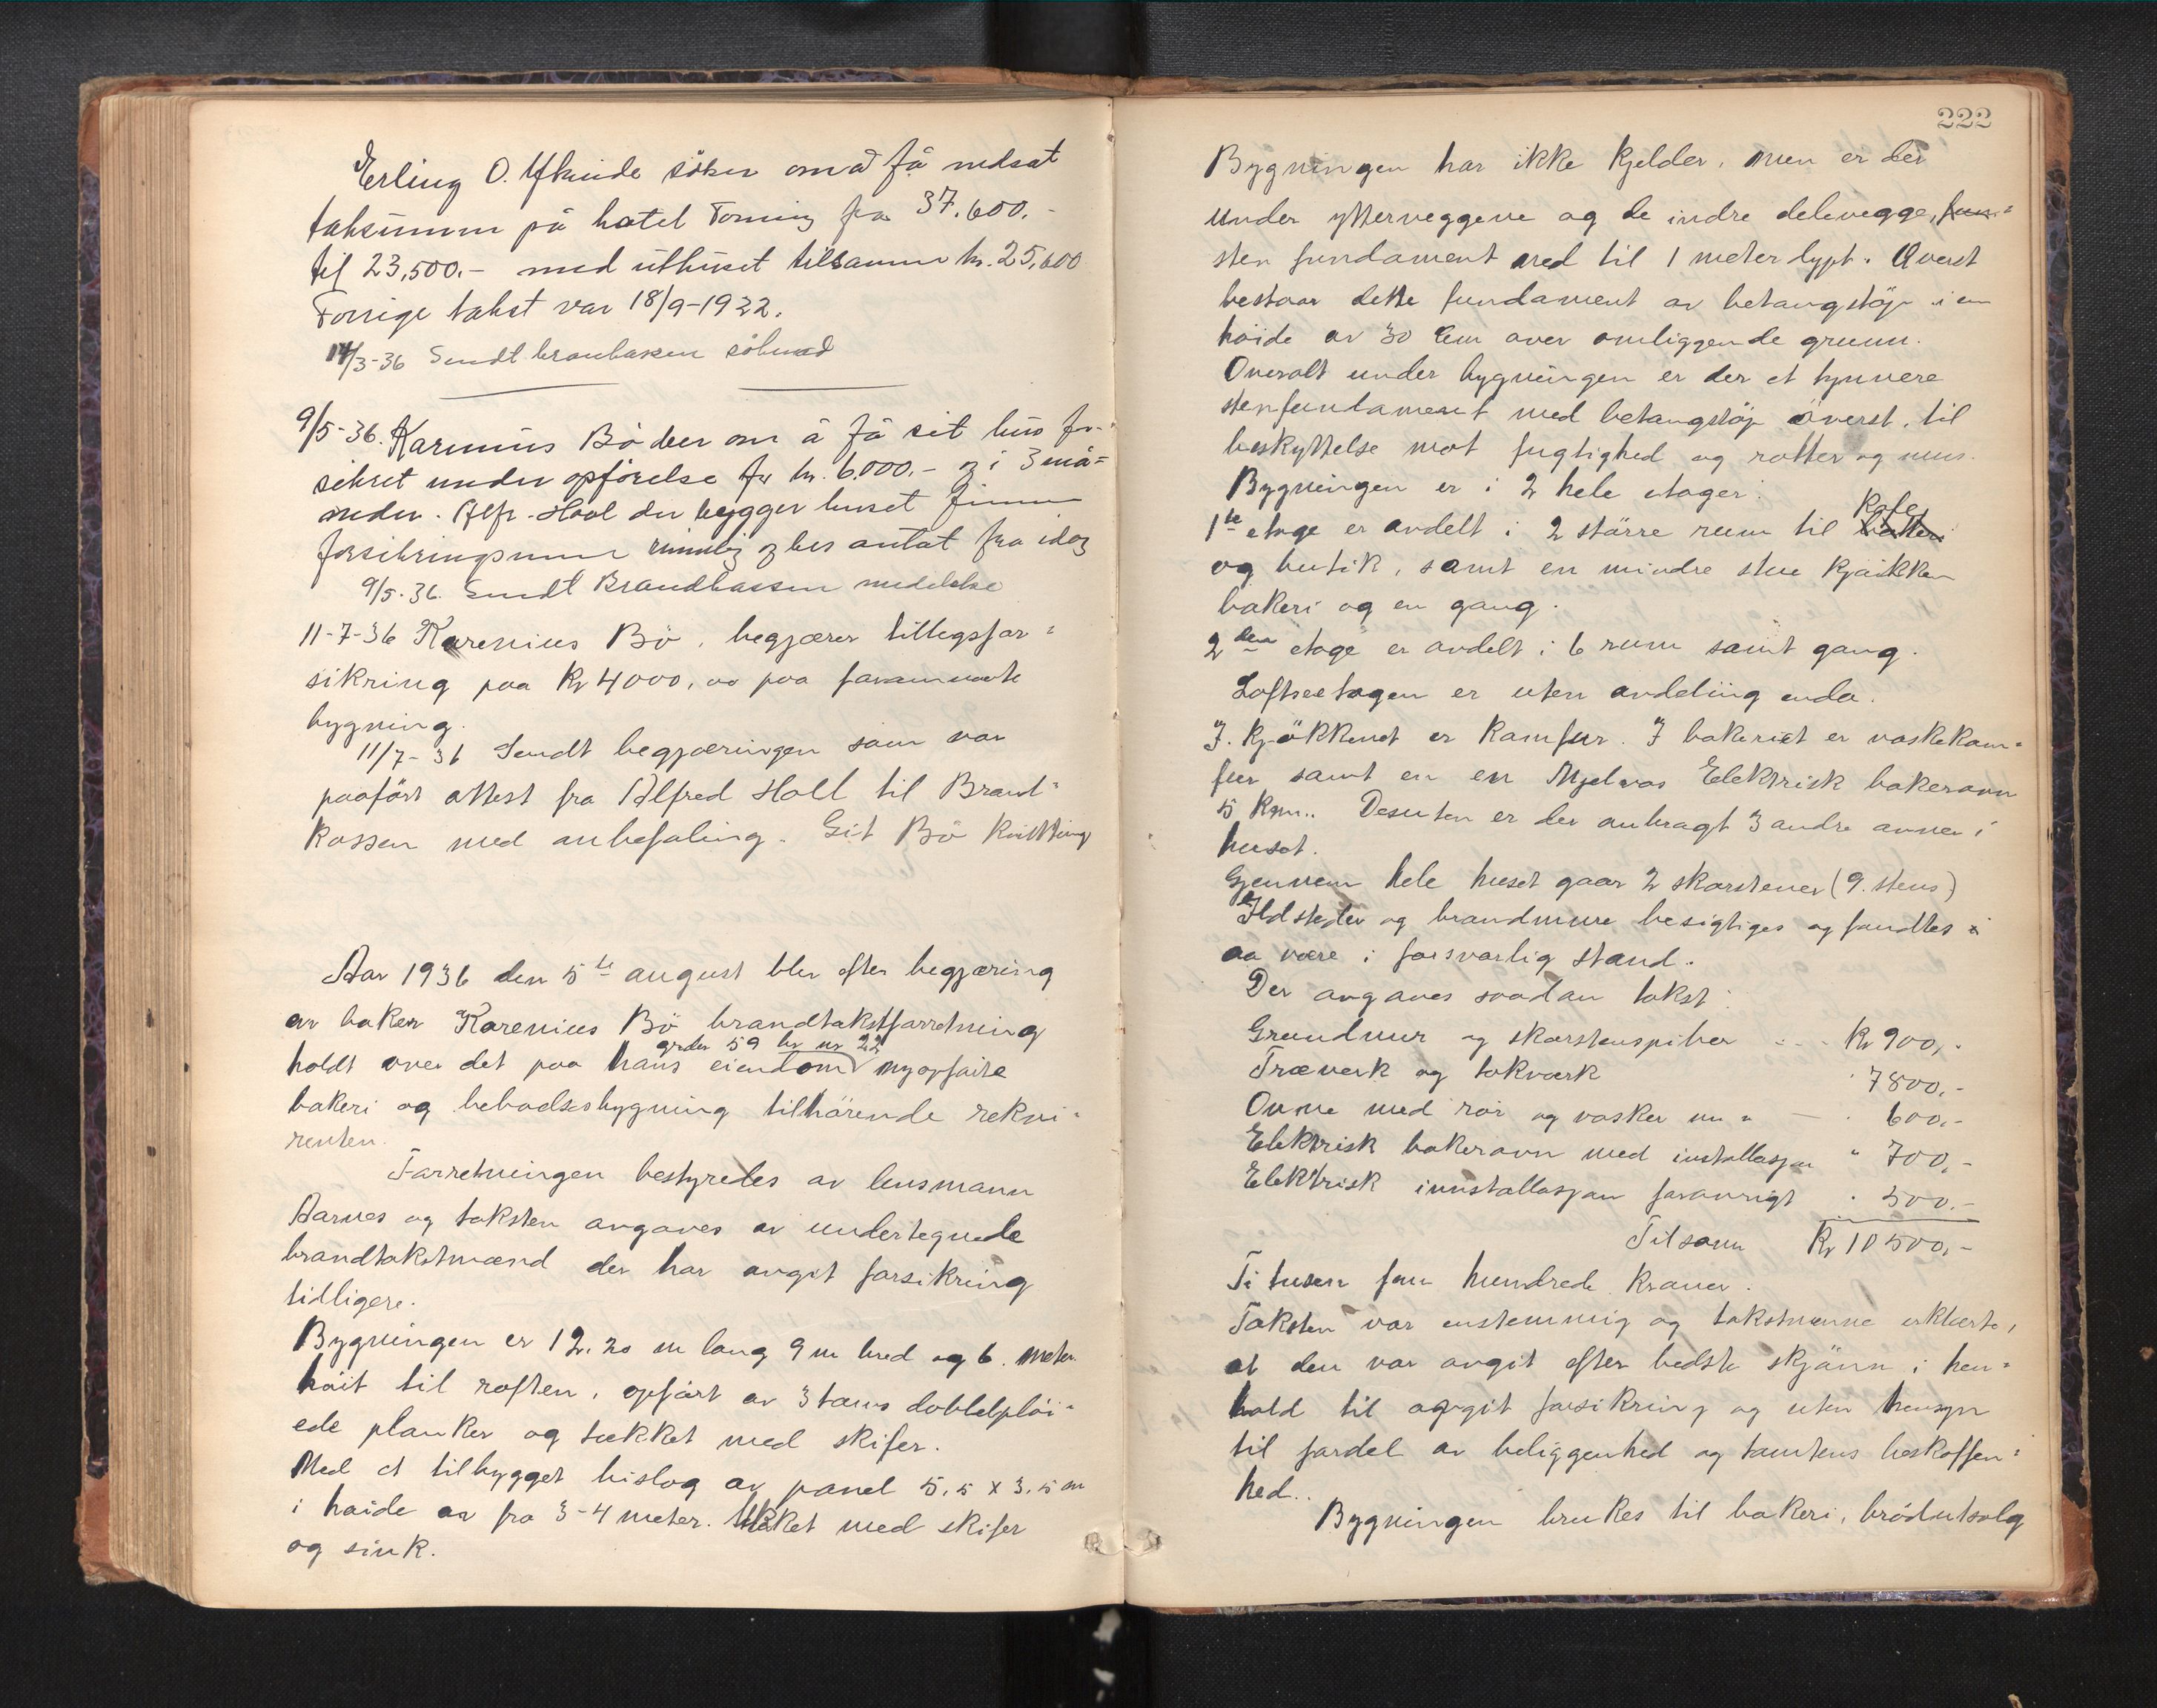 Erling O. söker om å få nedsat
taksumm på hotel Torning fra 37.600.-
til 23,500.- med uthuset tilsamm kr. 25,600
Forrige takst var 18/9-1922.
14/3-36 Sendt brankassen söknad
9/5-36. Karenius Bö ber om å få sit hus for-
sikret under opförelse for kr. 6.000.- og i 3 må=
neder. Alfr. Hool der bygger huset finner
forsikringssumm rimelig og bes antat fra idag
9/5-36. Sendt Brandkassen meddelelse
11-7-36 Karenius Bö, begjærer tillegsfor=
sikring paa Kr 4000,00 paa foranevnte
bygning.
11/7-36 Sendt begjæringen som var
paafört attest fra Alfred Holl til Brand=
Kassen med anbefaling. Git Bö Kvittring
Aar 1936 den 5te august blev efter begjæring
av baker Karenius Bö brandtakstforretning
gnder 59 br nr 22
holdt over det paa hans eiendom nyopförte
bakeri og beboelsesbygning tilhörende rekvi=
renten.
Forretningen bestyredes av lensmann
Aarnes og taksten avgaves av undertegnede
brandtakstmænd der har avgit forsikring
tidligere.
Bygningen er 12.20 m lang 9 m bred og 6. meter
höit til roften, opfört av 3 toms dobbelplöi=
ede planker og tækket med skifer.
Med et tilbygget bislag av panel 5,5 x 3,5 m
i höide av fra 3-4 meter. tækket med skifer
og sink.
222
Bygningen har ikke kjelder, men er der
under ytterveggene og de indre delevegge, fun=
sten fundament ned til 1 meter dypt. Överst
bestaar dette fundament av betongstöp i en
höide av 30 Cm over omliggende grunn.
Overalt under bygningen er der et tynnere
stenfundament med betongstöp överst, til
beskyttelse mot fugtighed og rotter og mus.
Bygningen er i 2 hele etager:
Kafe
1te etage er avdelt i 2 större rum til bakeri
og butik, samt en mindre stue kjökken
bakeri og en gang.
2den etage er avdelt i 6 rum samt gang.
Loftsetagen er uten avdeling enda.
I. Kjökkenet er Kamfur. I bakeriet er vaskekom=
fur samt en en Mjelvas Elektrisk bakerovn
5 Kvm.. Desuten er der anbragt 3 andre ovner i
huset.
Gjennem hele huset gaar 2 skorstener (9. stens)
Ildsteder og brandmure besigtiges og fandtes i
aa være i forsvarlig stand.
Der avgaves saadan takst:
Grundmur og skorstenspiber - - - Kr 900,-
Træverk og takverk " 7800,-
Ovne med rör og vasker m " — " 600.-
Elektrisk bakerovn med installasjon " 700,-
Elektrisk innstallasjon forövrigt " 500.-
Tilsam Kr 10500,-
Ti tusen fem hundrede Kroner.
Taksten var enstemmig og takstmenne erklærte,
at den var avgit efter bedste skjönn i hen=
hold til avgit forsikring og uten hensyn
til fordel av beliggenhed og tomtens beskaffen=
hed..
Bygningen brukes til bakeri, brödutsalg